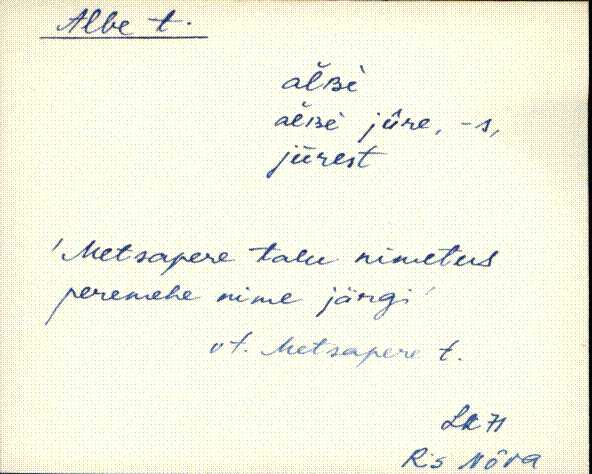 Albe t.
al̆ʙè
al̆ʙè jûre, -s,
jūrest
'Metsapere talu nimetus
peremehe nime järgi'
vt. Metsapere t.
Lk 71
Ris Nõva